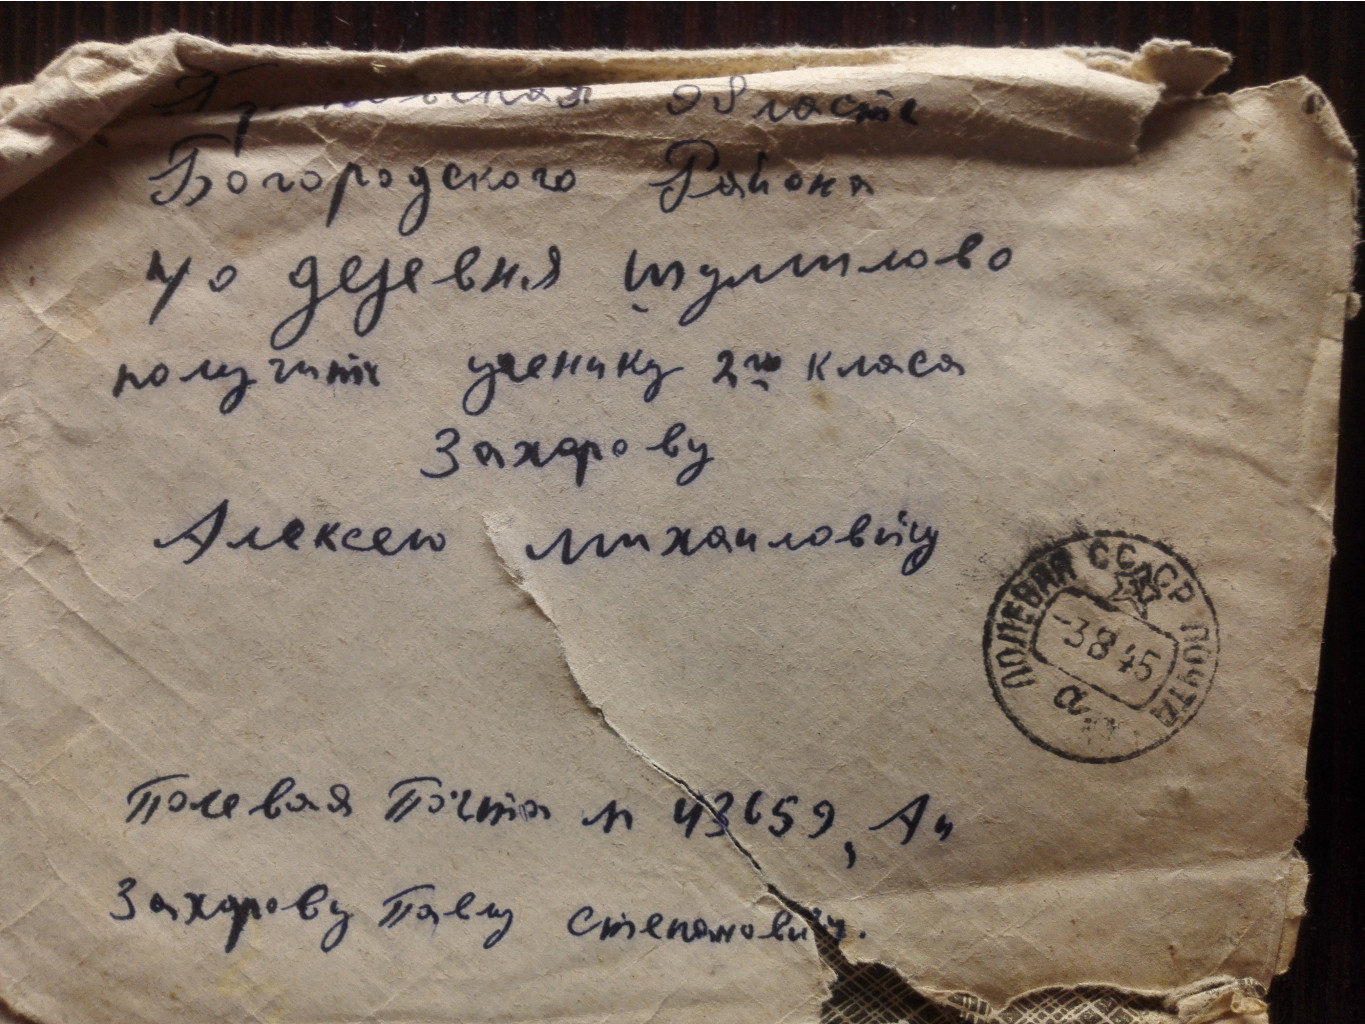 область
Богородского Района
ч/о деревня шумилово
получить ученику 2го класа
Захарову
Алексею михаиловичу
ПОЛЕВАЯ СССР ПОЧТА
-3 8 45
а
Полевая Почта N 43659, А"
Захарову Павлу степанович.